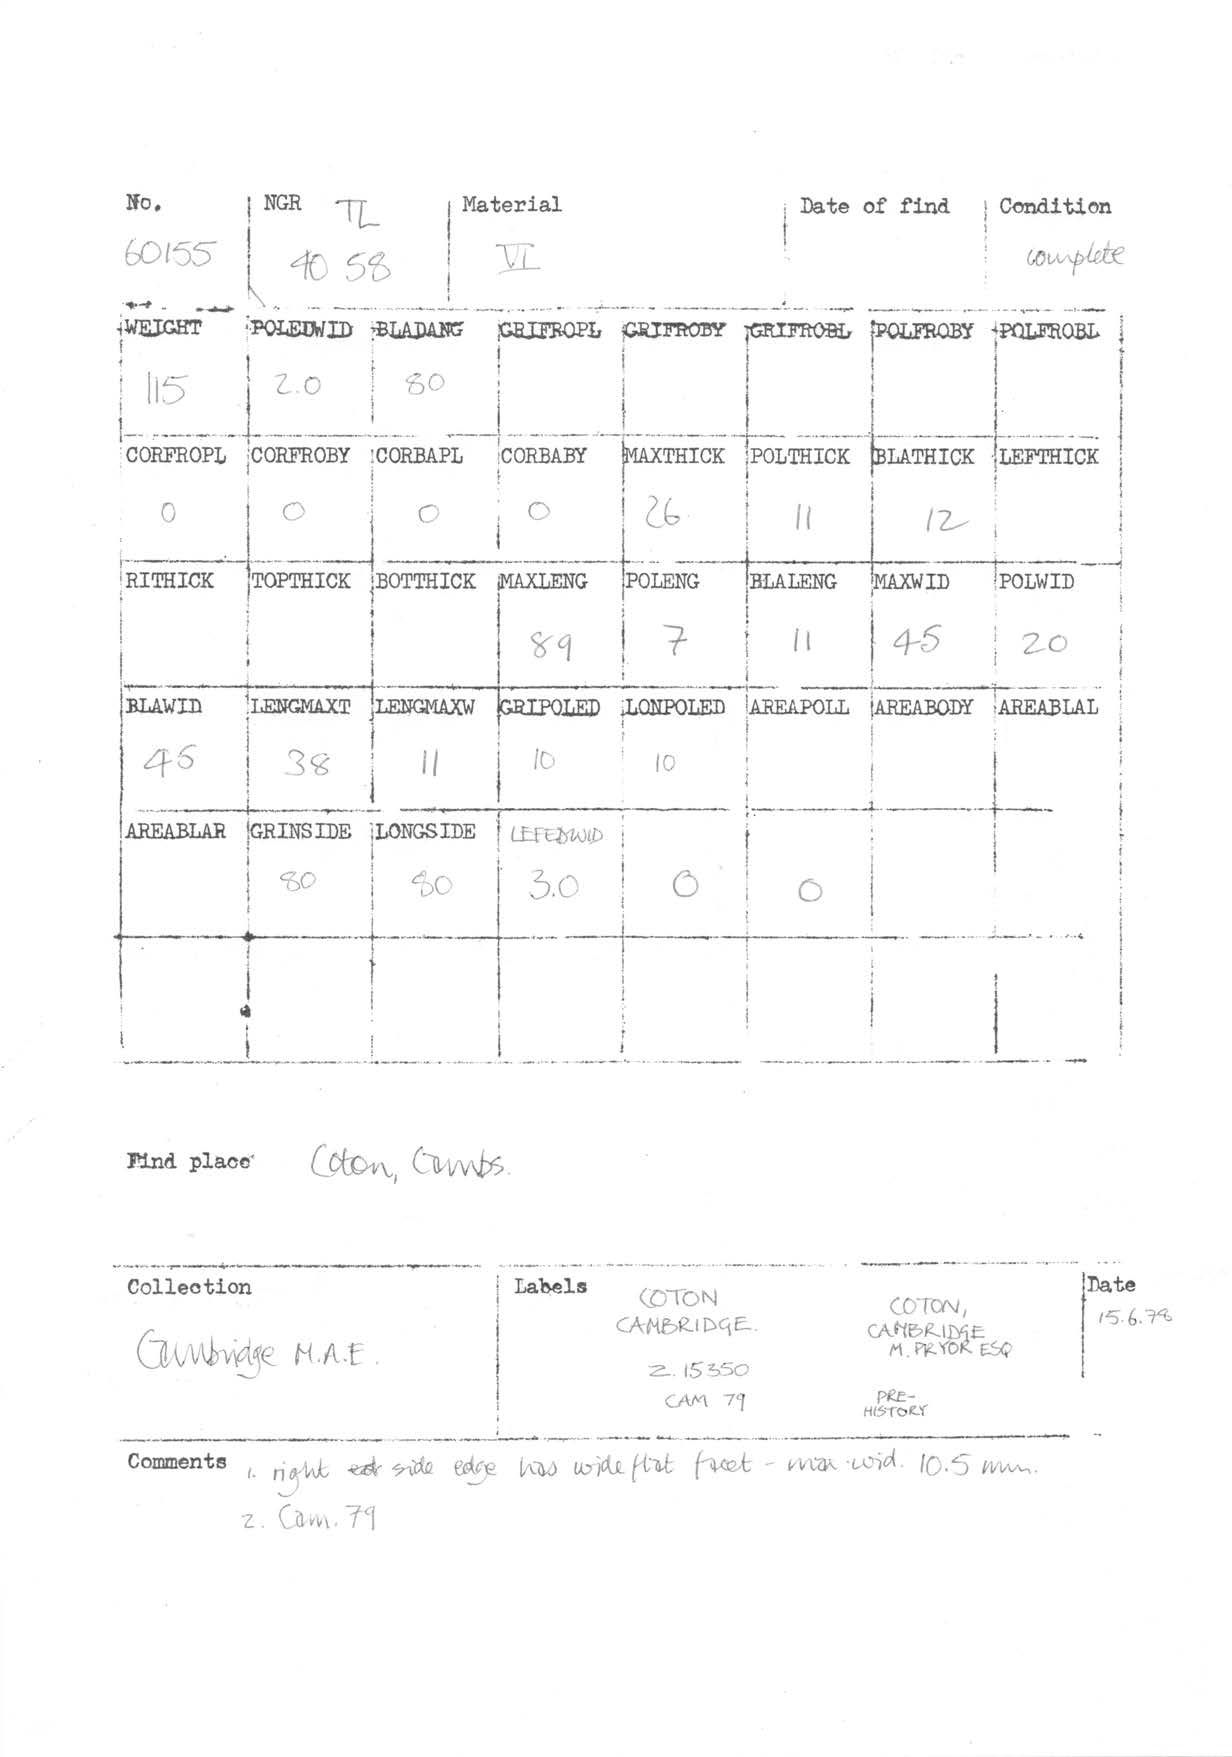 No. NGR TL Material Date of find Condition
60155 40 58 VI complete
WEIGHT POLEDWID BLADANG GRIFROPL GRIFROBY GRIFROBL POLFROBY POLFROBL
115 2.0 80
CORFROPL CORFROBY CORBAPL CORBABY MAXTHICK POLTHICK BLATHICK LEFTHICK
0 0 0 0 26 11 12
RITHICK TOPTHICK BOTTHICK MAXLENG POLENG BLALENG MAXWID POLWID
89 7 11 45 20
BLAWID LENGMAXT LENGMAXW GRIPOLED LONPOLED AREAPOLL AREABODY AREABLAL
45 38 11 10 10
AREABLAR GRINSIDE LONGSIDE LEFEDWID
80 80 3.0 0 0
Find place Coton, Cambs.
Collection Labels Date
Cambridge M.A.E.
COTON
CAMBRIDGE.
Z.15350
CAM 79
COTON,
CAMBRIDGE
M. PRYOR ESQ
PRE-
HISTORY
15.6.78
Comments 1. right side edge has wide flat facet - max. wid. 10.5 mm.
2. Cam. 79